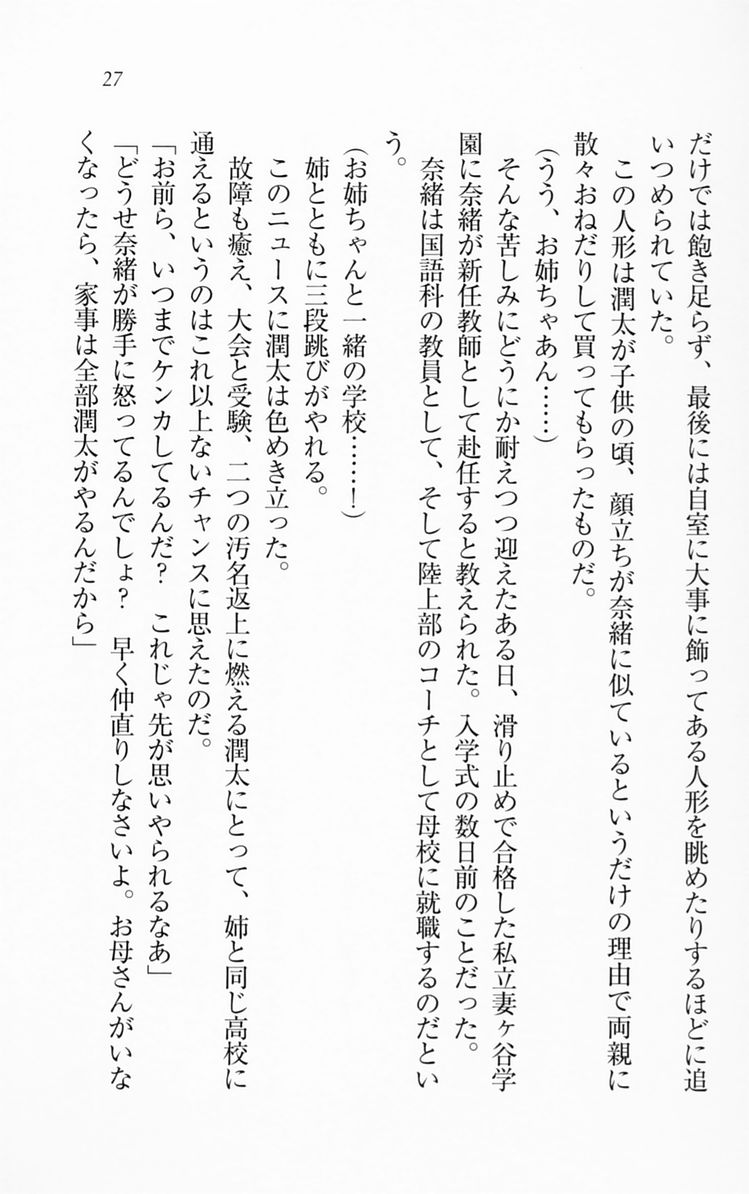 27
だけでは飽き足らず、最後には自室に大事に飾ってある人形を眺めたりするほどに追
いつめられていた。
この人形は潤太が子供の頃、顔立ちが奈緒に似ているというだけの理由で両親に
散々おねだりして買ってもらったものだ。
(うう、お姉ちゃあん……)
そんな苦しみにどうにか耐えつつ迎えたある日、滑り止めで合格した私立妻ヶ谷学
園に奈緒が新任教師として赴任すると教えられた。入学式の数日前のことだった。
奈緒は国語科の教員として、そして陸上部のコーチとして母校に就職するのだとい
う。
(お姉ちゃんと一緒の学校……!)
姉とともに三段跳びがやれる。
このニュースに潤太は色めき立った。
故障も癒え、大会と受験、二つの汚名返上に燃える潤太にとって、姉と同じ高校に
通えるというのはこれ以上ないチャンスに思えたのだ。
「お前ら、いつまでケンカしてるんだ? これじゃ先が思いやられるなあ」
「どうせ奈緒が勝手に怒ってるんでしょ? 早く仲直りしなさいよ。お母さんがいな
くなったら、家事は全部潤太がやるんだから」